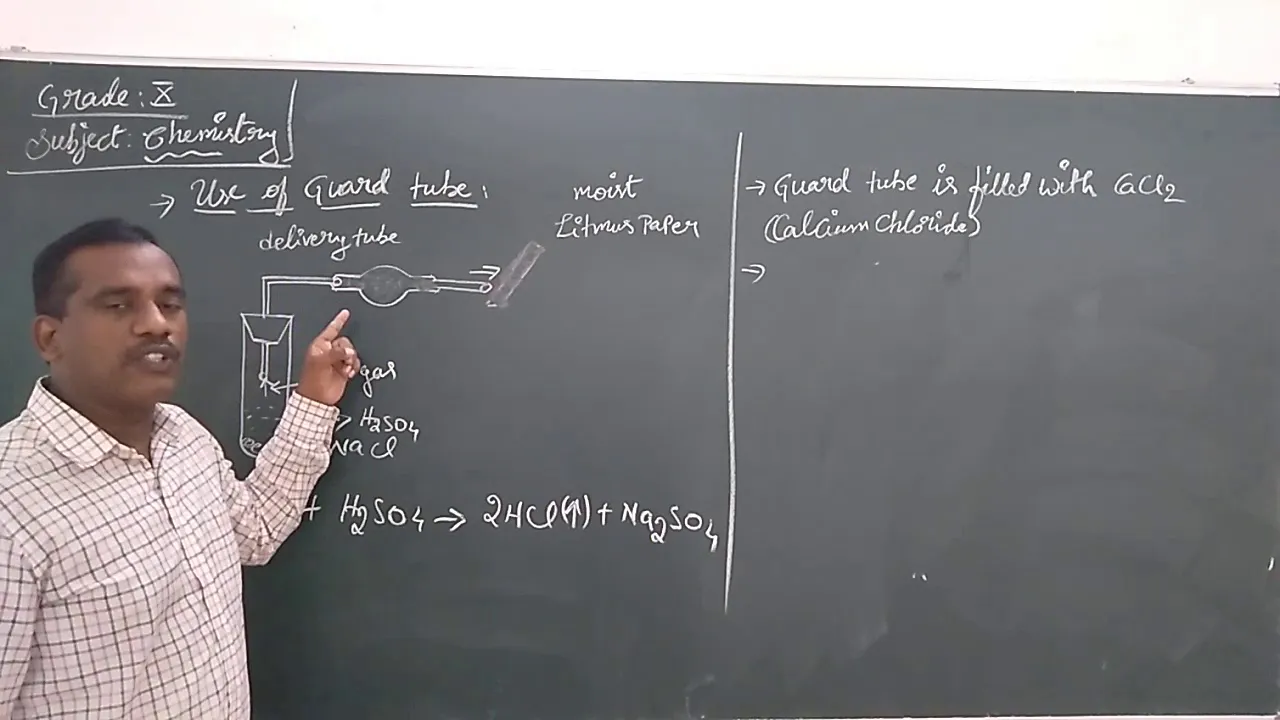 Grade: X
Subject: Chemistry
→ Use of Guard tube:
delivery tube
moist
Litmus Paper
gas
→ H2SO4
NaCl
+ H2SO4 → 2HCl(↑) + Na2SO4
→ Guard tube is filled with CaCl2
(Calcium Chloride)
→